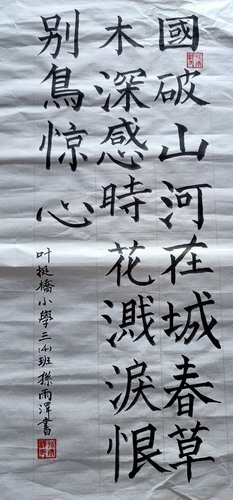 國破山河在城春草
木深感時花濺淚恨
别鳥惊心
叶挺橋小學三(4)班孫雨澤書